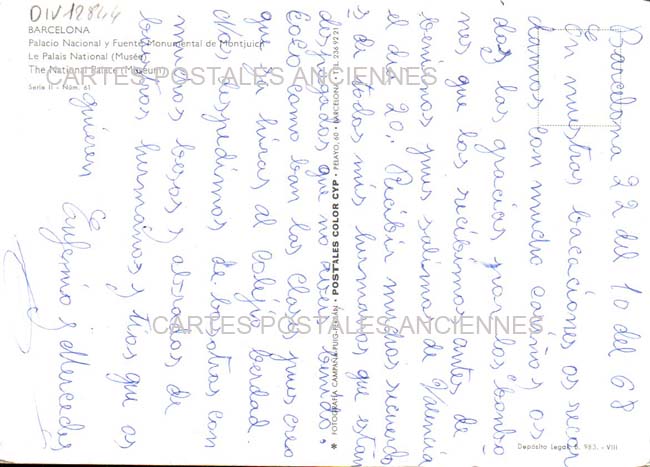 DIV12844
BARCELONA
Palacio Nacional y Fuente Monumental de Montjuich
Le Palais National (Musée)
The National Palace (Museum)
Serie II - Núm. 61
CARTES POSTALES ANCIENNES
CARTES POSTALES ANCIENNES
✱ FOTOGRAFÍA CAMPAÑÁ-PUIG-FERRÁN • POSTALES COLOR CYP • PELAYO, 60 • BARCELONA TEL. 236 92 21
Depósito Legal B. 983. - VIII
Barcelona 22 del 10 del 68
En nuestras bacaciones os recor
damos con mucho cariño y os
doy las gracias por los bombo
nes que los recibimos antes de
benirnos pues salimos de Valencia
el dia 20. Recibir muchos recuerdo
s de todos mis hermanos que estan
disgustados que no aveis venido.
como ban las clases pues creo
que ya hiras al Colejio berdad.
Nos despedimos de bosotros con
muchos besos y abrazos de
buestros hermanos y tios que os
quieren Eufemio y Mercedes